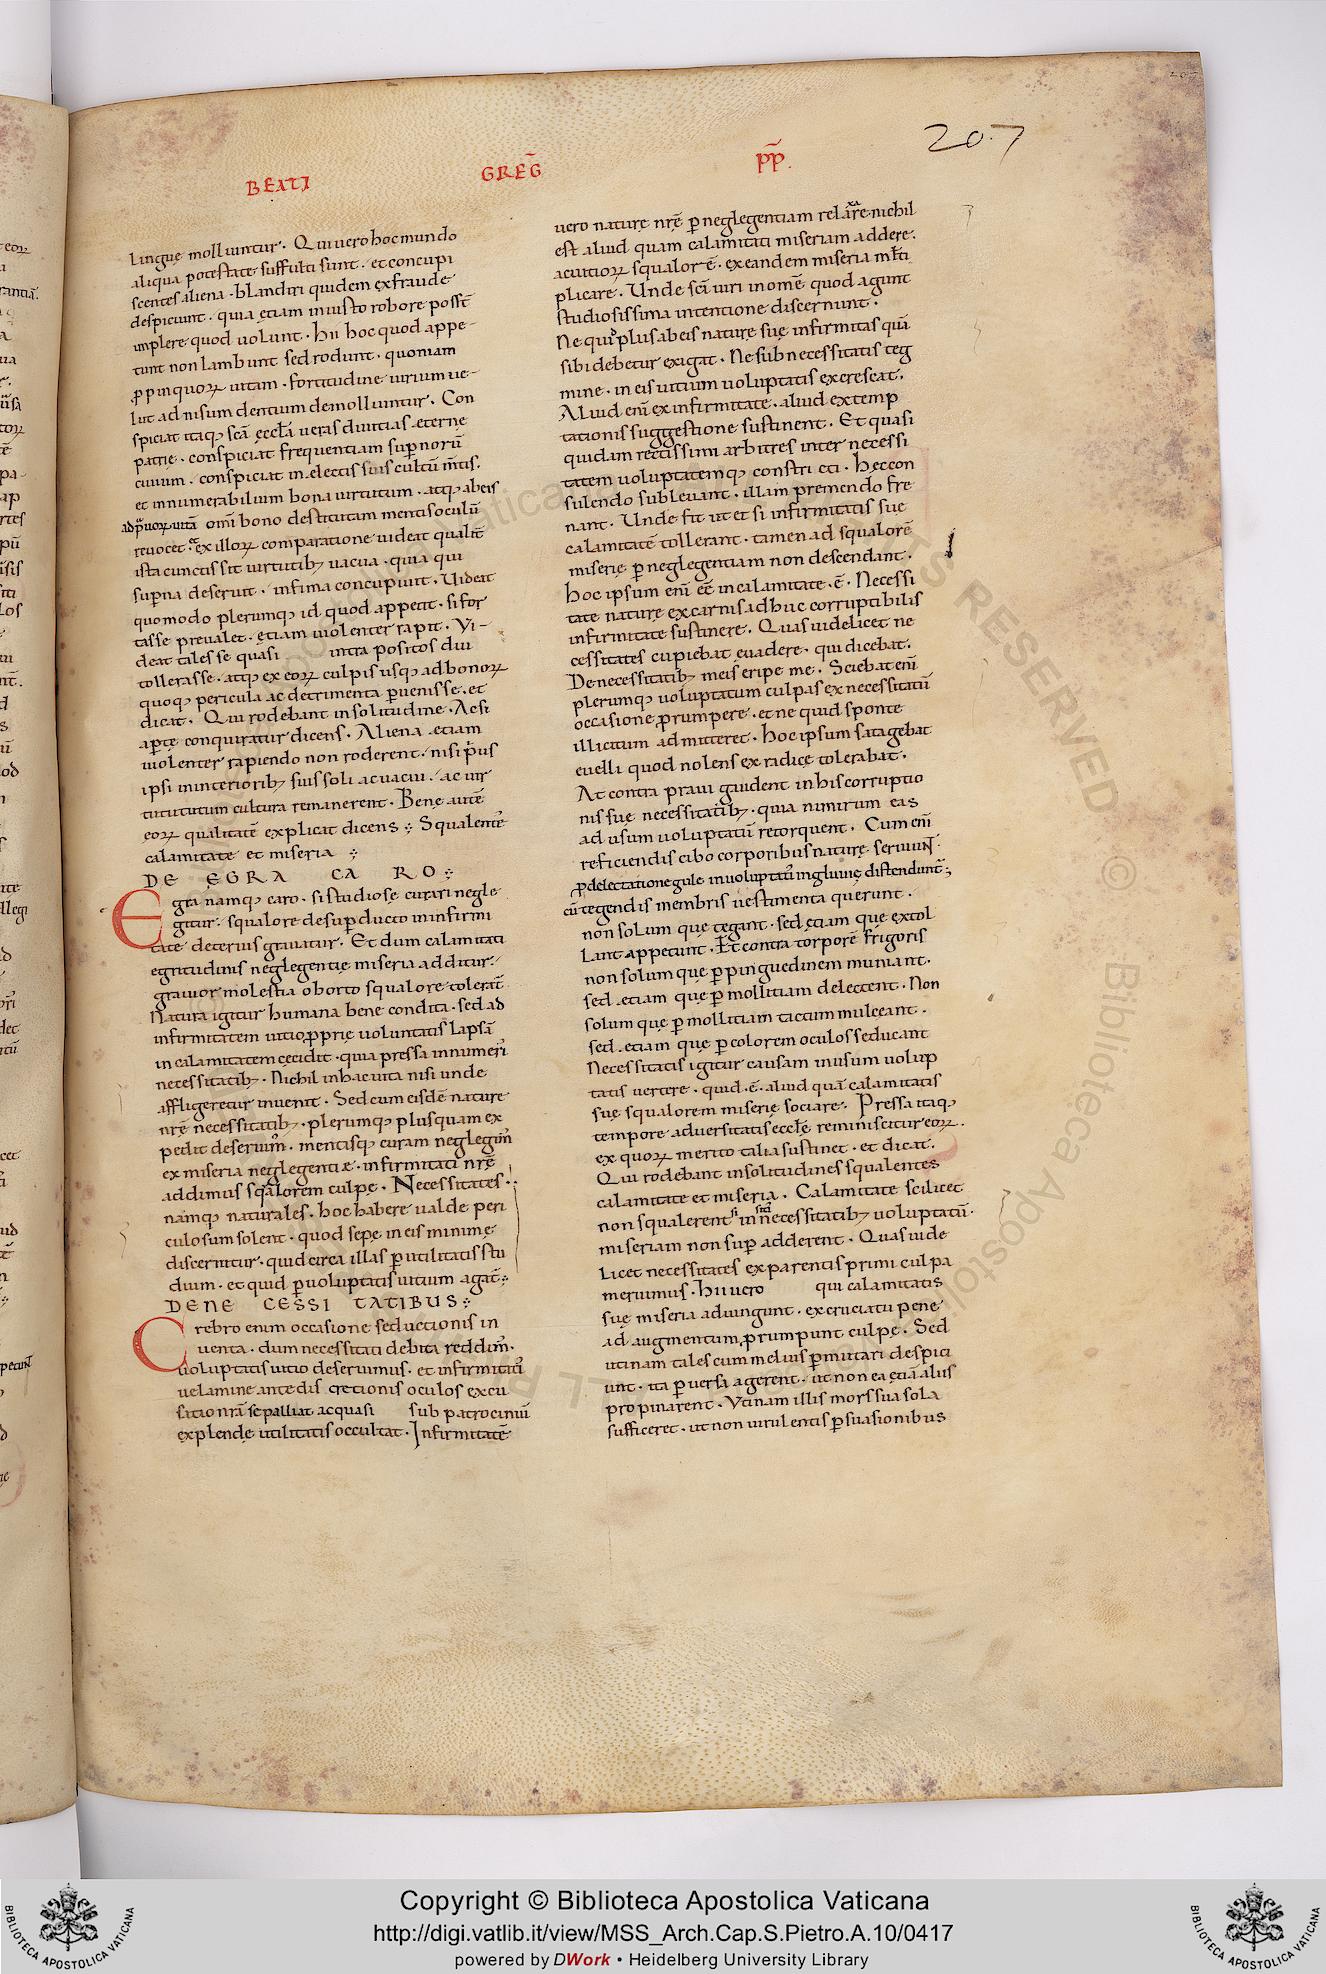 207
BEATI GREG̅ PP̅.
linguę molliuntur. Qui uero hoc mundo
aliqua potestate suffulti sunt. et concupi
scentes aliena. blandiri quidem ex fraude
despiciunt. quia ętiam iniusto robore poss̅t
implere quod uolunt. hii hoc quod appe-
tunt non lambunt sed rodunt. quoniam
ꝓpinquoꝝ uitam. fortitudine uirium ue-
lut ad nisum dentium demolliuntur. Con
spiciat itaqꝫ sc̅a ęccl̅a ueras diuitias ęterne
patrie. conspiciat frequentiam suꝑnorū
ciuium. conspiciat in electis suis cultū m̅tis.
et innumerabilium bona uirtutum. atqꝫ ab eis
omni bono destitutam mentis oculū
reuocet. ex illoꝝ comparatione uideat qualit̅
ista cunctis sit uirtutibꝫ uacua. quia qui
suꝑna deserunt. infima concupiunt. Uideat
quomodo plerumqꝫ id quod appetit. si for
tasse preualet. ętiam uiolenter rapit. Vi-
deat tales se quasi intra positos diu
tollerasse. atqꝫ ex eoꝝ culpis usqꝫ ad bonoꝝ
quoqꝫ pericula ac detrimenta ꝑuenisse. et
dicat. Qui rodebant in solitudine. Ac si
aꝑte conquiratur dicens. Aliena ętiam
uiolenter rapiendo non roderent. nisi pͥus
ipsi in interioribꝫ suis soli ac uacui. ac uir
tutum cultura remanerent. Bene autē
eoꝝ qualitatē explicat dicens: Squalente
calamitate et miseria
DE ĘGRA CA RO
Egra namqꝫ caro. si studiose curari negle
gitur. squalore desuꝑducto in infirmi
tate deterius grauatur. Et dum calamitati
egritudinis neglegentię miseria additur.
grauior molestia oborto squalore tolerat̅
Natura igitur humana bene condita. sed ad
infirmitatem uitio ꝓprię uoluntatis lapsā
in calamitatem cecidit. quia pressa innumeri̅
necessitatibꝫ. Nichil in hac uita nisi unde
affligeretur inuenit. Sed cum eisdē nature
nrē necessitatibꝫ. plerumqꝫ plusquam ex
pedit deseruim̅. mentisqꝫ curam neglegim̅
ex miseria neglegentiæ. infirmitati nrę̅
addimus squalorem culpę. Necessitates
namqꝫ naturales. hoc habere ualde peri
culosum solent. quod sepe in eis minimę
discernitur. quid circa illas ꝑ utilitatis stu
dium. et quid ꝑ uoluptatis uitium agat̅
DE NE CESSI TATIBUS
Crebro enim occasione seductionis in
uenta. dum necessitati debita reddim̅.
uoluptatis uitio deseruimus. et infirmitatis
uelamine ante discretionis oculos excu
satio nrā se palliat ac quasi sub patrociniū
explendę utilitatis occultat. Infirmitatē
uero naturę nrę̅ ꝑ neglegentiam relaxare. nichil
est aliud quam calamitati miseriam addere.
ac uitioꝝ squalorē. ex eandem miseria ml̅ti
plicare. Unde sc̅i uiri in om̅e quod agunt
studiosissima intentione discernunt.
Ne quid plus ab eis naturę suę infirmitas quā
sibi debetur exigat. Ne sub necessitatis teg
mine. in eis uitium uoluptatis excrescat.
Aliud eni̅ ex infirmitate. aliud ex temp
tationis suggestione sustinent. Et quasi
quidam rectissimi arbitres inter necessi
tatem uoluptatemqꝫ constricti. hęc con
sulendo subleuant. illam premendo fre
nant. Unde fit ut et si infirmitatis suę
calamitatē tollerant. tamen ad squalorē
miserię ꝑ neglegentiam non descendant.
Hoc ipsum eni̅ eē in calamitate. ē. Necessi
tate naturę ex carnis adhuc corruptibilis
infirmitate sustinere. Quas uidelicet ne
cessitates cupiebat euadere. qui dicebat.
De necessitatibꝫ meis eripe me. Sciebat eni̅
plerumqꝫ uoluptatum culpas ex necessitatū
occasione ꝓrumpere. et ne quid sponte
illicitum admitteret. hoc ipsum satagebat
euelli quod nolens ex radice tolerabat.
At contra praui gaudent in his corruptio
nis suę necessitatibꝫ. quia nimirum eas
ad usum uoluptatū retorquent. Cum eni̅
reficiendis cibo corporibus naturę seruiunt.
ꝓ delectatione gule in uoluptatū ingluuię distenduntr̅
cū tegendis membris uestimenta querunt.
non solum quę tegant. sed ętiam quę extol
lant appetunt. Et contra torporē frigoris
non solum quę ꝑ pinguedinem muniant.
sed ętiam quę ꝑ mollitiam delectent. Non
solum quę ꝑ mollitiam tactum mulceant.
sed ętiam quę ꝑ colorem oculos seducant
Necessitatis igitur causam in usum uolup
tatis uertere. quid. ē. aliud quā calamitatis
suę squalorem miserię sociare. Pressa itaqꝫ
tempore aduersitatis ęccl̅ę reminiscitur eoꝝ.
ex quoꝝ merito talia sustinet. et dicat.
Qui rodebant in solitudines squalentes
calamitate et miseria. Calamitate scilicet
non squalerent si in necessitatibꝫ uoluptatū.
miseriam non suꝑadderent. Quas uide
licet necessitates ex parentis primi culpa
meruimus. hii uero qui calamitatis
suę miseria adiungunt. ex cruciatu penę
ad augmentum ꝓrumpunt culpę. Sed
utinam tales cum melius ꝑmutari despici
unt. ita ꝑuersa agerent. ut non ea ętiā aliis
propinarent. Vtinam illis mors sua sola
sufficeret. ut non uirulentis ꝑsuasionibus
Copyright © Biblioteca Apostolica Vaticana
http://digi.vatlib.it/view/MSS_Arch.Cap.S.Pietro.A.10/0417
powered by DWork • Heidelberg University Library
BIBLIOTECA APOSTOLICA VATICANA
BIBLIOTECA APOSTOLICA VATICANA